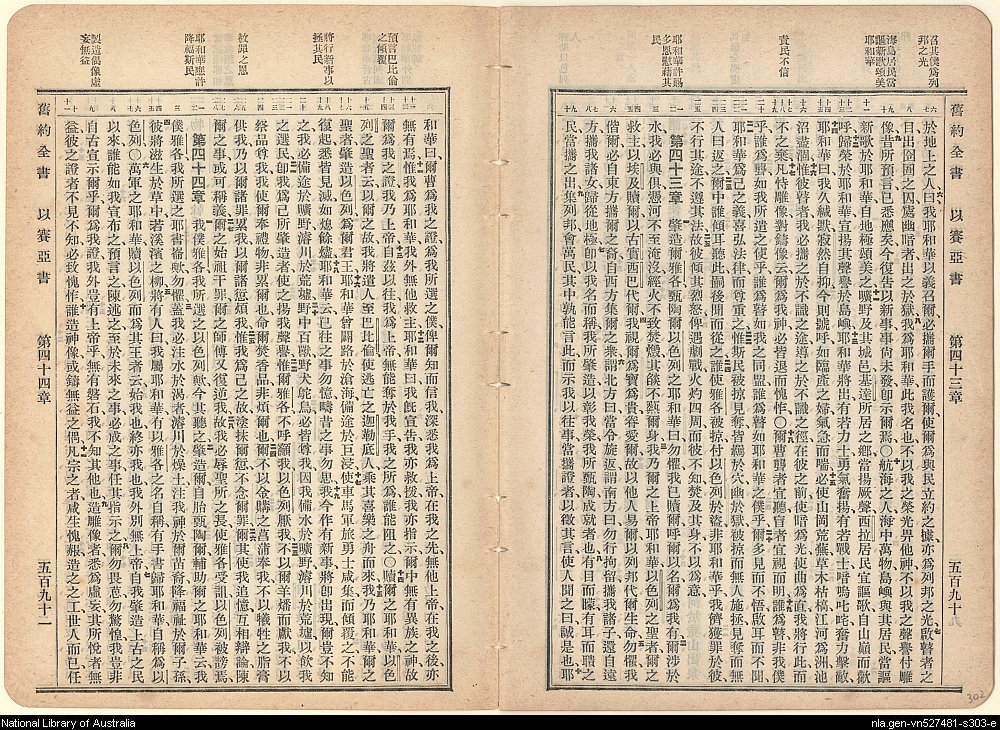 召其僕為列邦之光
海島居民當謳新歌頌美耶和華
責民不信
耶和華許賜多恩慰藉其民
舊約全書 以賽亞書 第四十三章 五百九十九
於地上之人曰我耶和華以義召爾必攜爾手而護爾使爾為與民立約之據亦為列邦之光啟瞽者之
目出囹圄之囚處幽暗者出之於獄我為耶和華此我名也不以我之榮光畀他神不以我之聲譽付雕
像昔所預言已悉應矣今復告以新事事尚未發即示爾焉○航海之人海中萬物島嶼與其居民當謳
新歌於耶和華自地極頌美之曠野及其城邑基達所居之鄉當揚厥聲西拉居民宜謳歌自山巔而歡
呼歸榮於耶和華宣揚其聲譽於島嶼耶和華將出有若力士勇氣奮揚有若戰士嘻鳴叱咤奮力擊敵
耶和華曰我久緘默寂然自抑今則號呼如臨產之婦氣急而喘必使山岡荒蕪草木枯槁江河為洲池
沼盡涸惟彼瞽者我必攜之於不識之途導之於不識之徑在彼之前使暗為光使曲為直我將行此而
不之棄凡恃雕像對鑄像云爾為我神者皆退而愧怍○爾曹聾者宜聽瞽者宜視而明誰為瞽非我僕
乎誰為聾如我所遣之使乎誰為瞽如我之同盟誰為瞽如耶和華之僕乎爾多見而不悟啟耳而不聞
耶和華為己之義喜弘法律而尊重之惟斯民被掠見奪皆羈於穴幽於獄被掠而無人施拯見奪而無
人曰返之爾中誰傾耳聽此嗣後聞而從之誰使雅各被掠付以色列於盜非耶和華乎我儕獲罪於彼
不行其途不遵其法故彼傾其烈怒俾遇劇戰火灼四周而彼不知焚及其身不以為意
第四十三章 肇造爾雅各甄陶爾以色列之耶和華曰勿懼我已贖爾呼爾以名爾為我有爾涉於
水我必與俱憑河不至淹沒經火不致焚燬其燄不爇爾身我乃爾之上帝耶和華以色列之聖者爾之
救主以埃及贖爾以古實西巴代爾我視爾為寶為貴眷愛爾故以他人易爾以列邦代爾生命勿懼我
偕爾必自東方攜爾之裔自西方集爾之眾謂北方曰當令旋返謂南方曰勿行拘留攜我諸子還自遠
方攜我諸女歸從地極即以我名而稱我所肇造以彰我榮我所甄陶成就者也有目而矇有耳而聵之
民當攜之出集列邦會萬民其中孰能言此而示我以往事當攜證者以徵其言使人聞之曰誠是也耶
預言巴比倫之傾覆
將行新事以拯其民
赦罪之恩
耶和華應許降福斯民
製造偶像虛妄無益
和華曰爾曹為我之證為我所選之僕俾爾知而信我深悉我為上帝在我之先無他上帝在我之後亦
無有焉惟我為耶和華我外無他救主耶和華曰我旣宣告我亦救援我亦指示爾中無有異族之神故
爾為我之證我乃上帝自茲以往我為上帝無能奪爾於我手我之所為誰能阻之○贖爾之主以色
列之聖者云以爾之故我將遣人至巴比倫使逃亡之迦勒底人乘其喜樂之舟而來我乃耶和華爾之
聖者肇造以色列為爾君王耶和華曾闢路於滄海備途於巨浸使車馬軍旅勇士咸集而傾覆之不能
復起悉皆見滅如熄餘燼耶和華云已往之事勿憶疇昔之事勿思我今作有新事將卽出現爾豈不知
之我必備途於曠野濬川於荒墟野中百獸野犬鴕鳥必皆尊我因我備水於曠野濬川於荒墟以飲我
之選民卽我為己所肇造者使之揚我聲譽惟爾雅各不呼籲我以色列厭我不以爾之羊燔而獻我不以
祭品尊我我不使爾奉禮物非累爾也命爾焚香品非煩爾也爾不以金購之菖蒲奉我不以犧牲之脂膏
供我乃以爾諸罪累我以爾諸愆煩我惟我為己之故塗抹爾愆不念爾罪爾其使我追憶互相辯論陳
爾之事或可稱義爾之始祖干罪爾之師傅又復逆我故我必辱聖所之長使雅各受詛以色列被謗焉
第四十四章 我僕雅各我所選之以色列歟今其聽之肇造爾自胎甄陶爾輔助爾之耶和華云我
僕雅各我所選之耶書崙歟勿懼蓋我必注水於渴者濬川於槁土注我神於爾苗裔降福祉於爾子孫
彼將滋生於草中若溪濱之柳將有人曰我屬耶和華有以雅各之名自稱有手書歸耶和華自稱為以
色列○萬軍之耶和華贖以色列而為其王者云始我也終亦我也我外別無上帝自我肇造上古之民
以來誰能如我宣布之預言之陳述之至於未來之事必成之事任其指示之爾勿畏葸勿驚惶我豈非
自古宣示爾乎爾為我證我外豈有上帝乎無有磐石我不知其他也造雕像者悉為虛妄其所悅者無
益彼之證者不見不知必致愧怍誰造神像或鑄無益之偶凡宗之者咸生愧赧造之之工世人而已任
舊約全書 以賽亞書 第四十四章 五百九十一
302
National Library of Australia
nla.gen-vn527481-s303-e